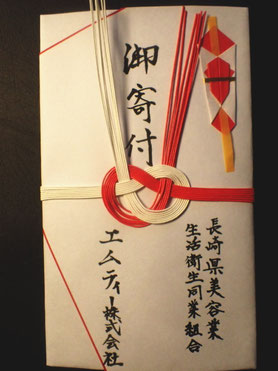 御寄付
長崎県美容業
生活衛生同業組合
エムティー株式会社